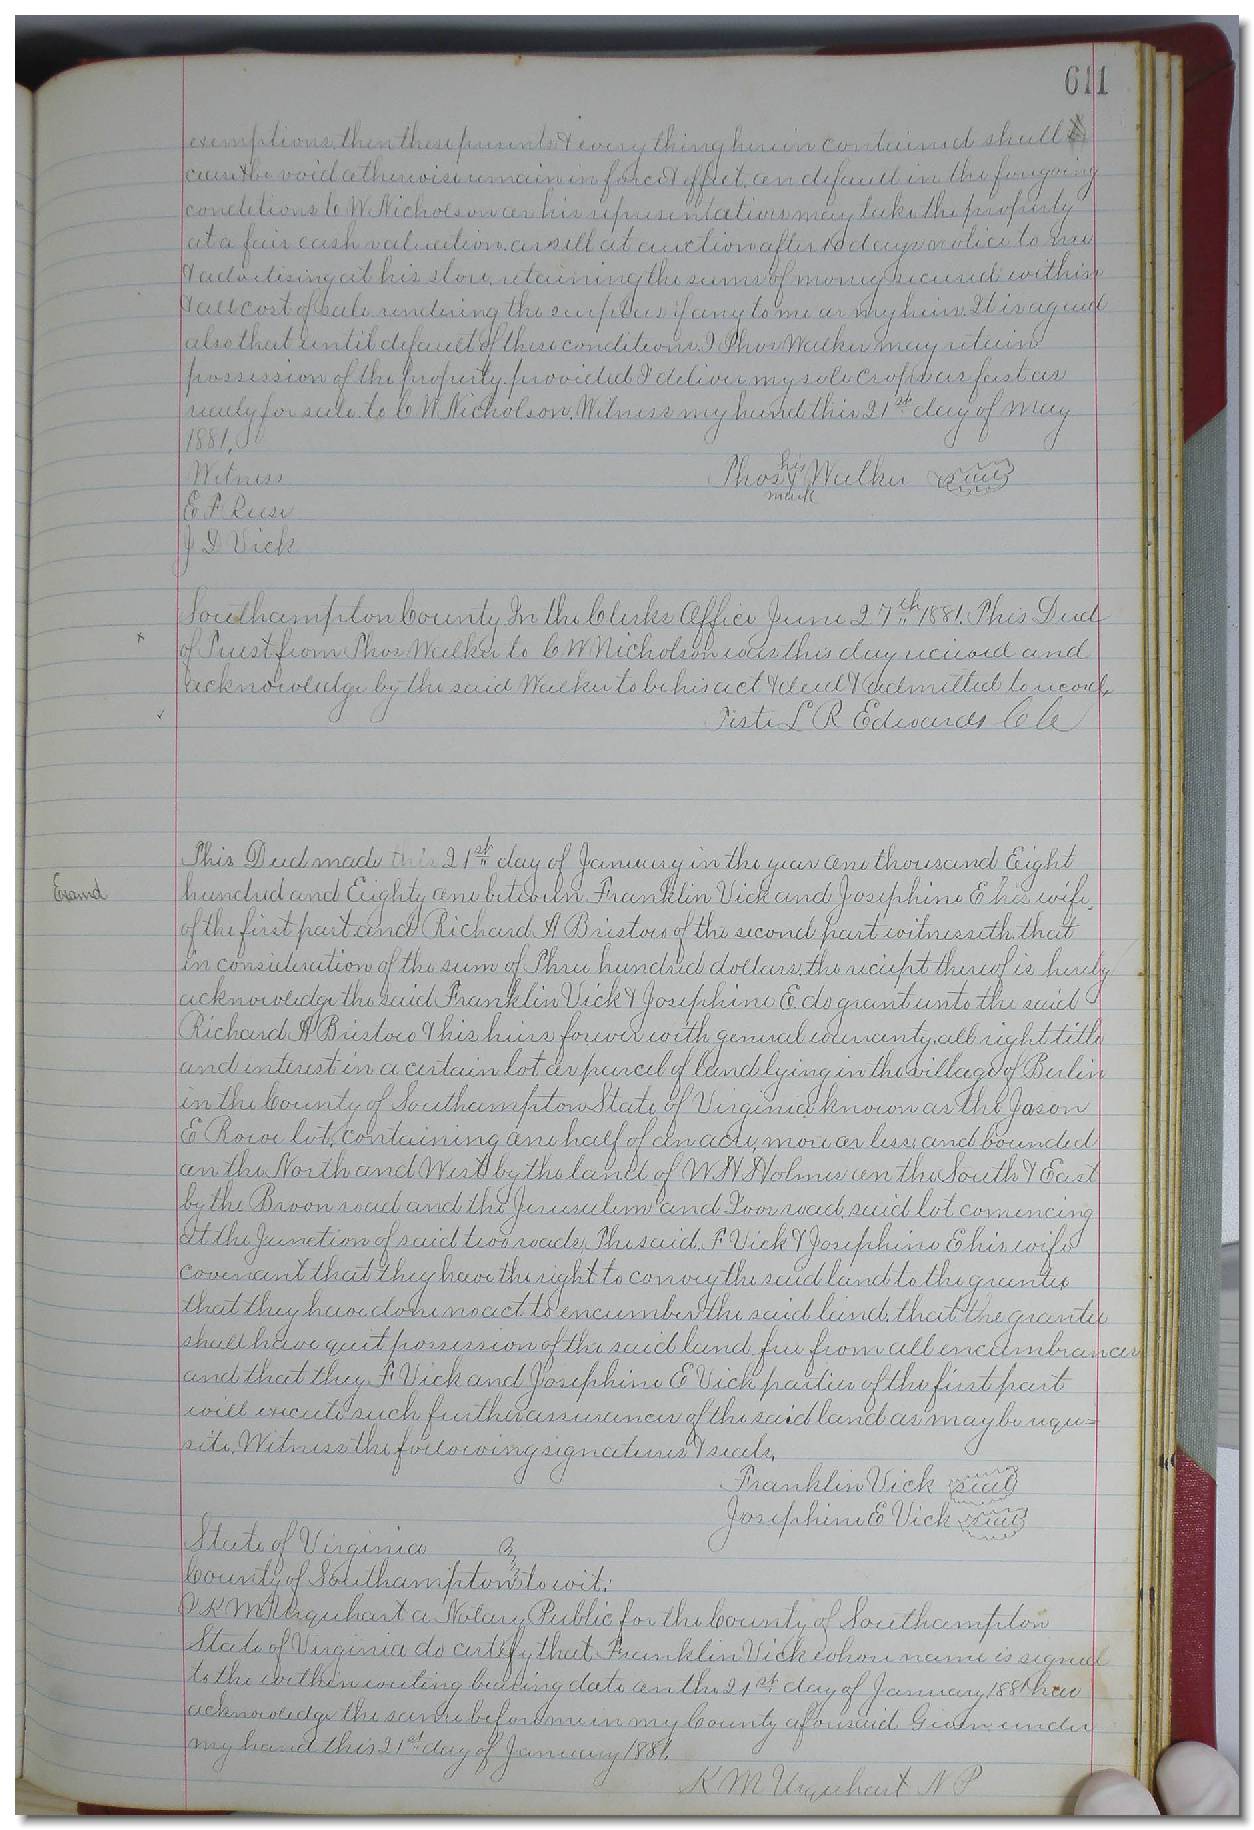 611
exemptions, then these presents & every thing herein contained shall
cease & be void otherwise remain in force & effect, on default in the foregoing
conditions C W Nicholson or his representatives may take the property
at a fair cash valuation or sell at auction after 10 days notice to me
& advertising at his store, retaining the sums of money secured within
& all cost of sale rendering the surplus if any to me or my heirs. It is agreed
also that until default of these conditions I Thos Walker may retain
possession of the property, provided I deliver my sole crops as fast as
ready for sale to C W Nicholson. Witness my hand this 21st day of May
1881.
Witness Thos his X mark Walker seal
E F Reese
J D Vick
Southampton County In the Clerks Office June 27th 1881. This Deed
of Trust from Thos Walker to C W Nicholson was this day received and
acknowledge by the said Walker to be his act & deed & admitted to record,
Teste L R Edwards Clk
Examd
This Deed made this 21st day of January in the year one thousand Eight
hundred and Eighty one between Franklin Vick and Josephine E his wife,
of the first part and Richard A Bristow of the second part witnesseth that
in consideration of the sum of Three hundred dollars, the reciept thereof is hereby
acknowledge the said Franklin Vick & Josephine E do grant unto the said
Richard A Bristow & his heirs forever with general warranty, all right title
and interest in a certain lot or parcel of land lying in the village of Berlin
in the County of Southampton State of Virginia known as the Jason
E Rowe lot, containing one half of an acre, more or less, and bounded
on the North and West by the land of W H Holmes on the South & East
by the Broon road and the Jerusalem and road, said lot comencing
at the Junction of said two roads, The said F Vick & Josephine E his wife
covenant that they have the right to convey the said land to the grantee
that they have done no act to encumber the said land, that the grantee
shall have quit possession of the said land free from all encumbrances
and that they F Vick and Josephine E Vick parties of the first part
will execute such further assurances of the said land as may be requi=
site, Witness the following signatures & seals,
Franklin Vick seal
Josephine E Vick seal
State of Virginia
County of Southampton to wit:
I K M Urquhart a Notary Public for the County of Southampton
State of Virginia do certify that Franklin Vick whose name is signed
to the within writing bearing date on the 21st day of January 1881 has
acknowledge the same before me in my County aforesaid Given under
my hand this 21st day of January 1881,
K M Urquhart N P